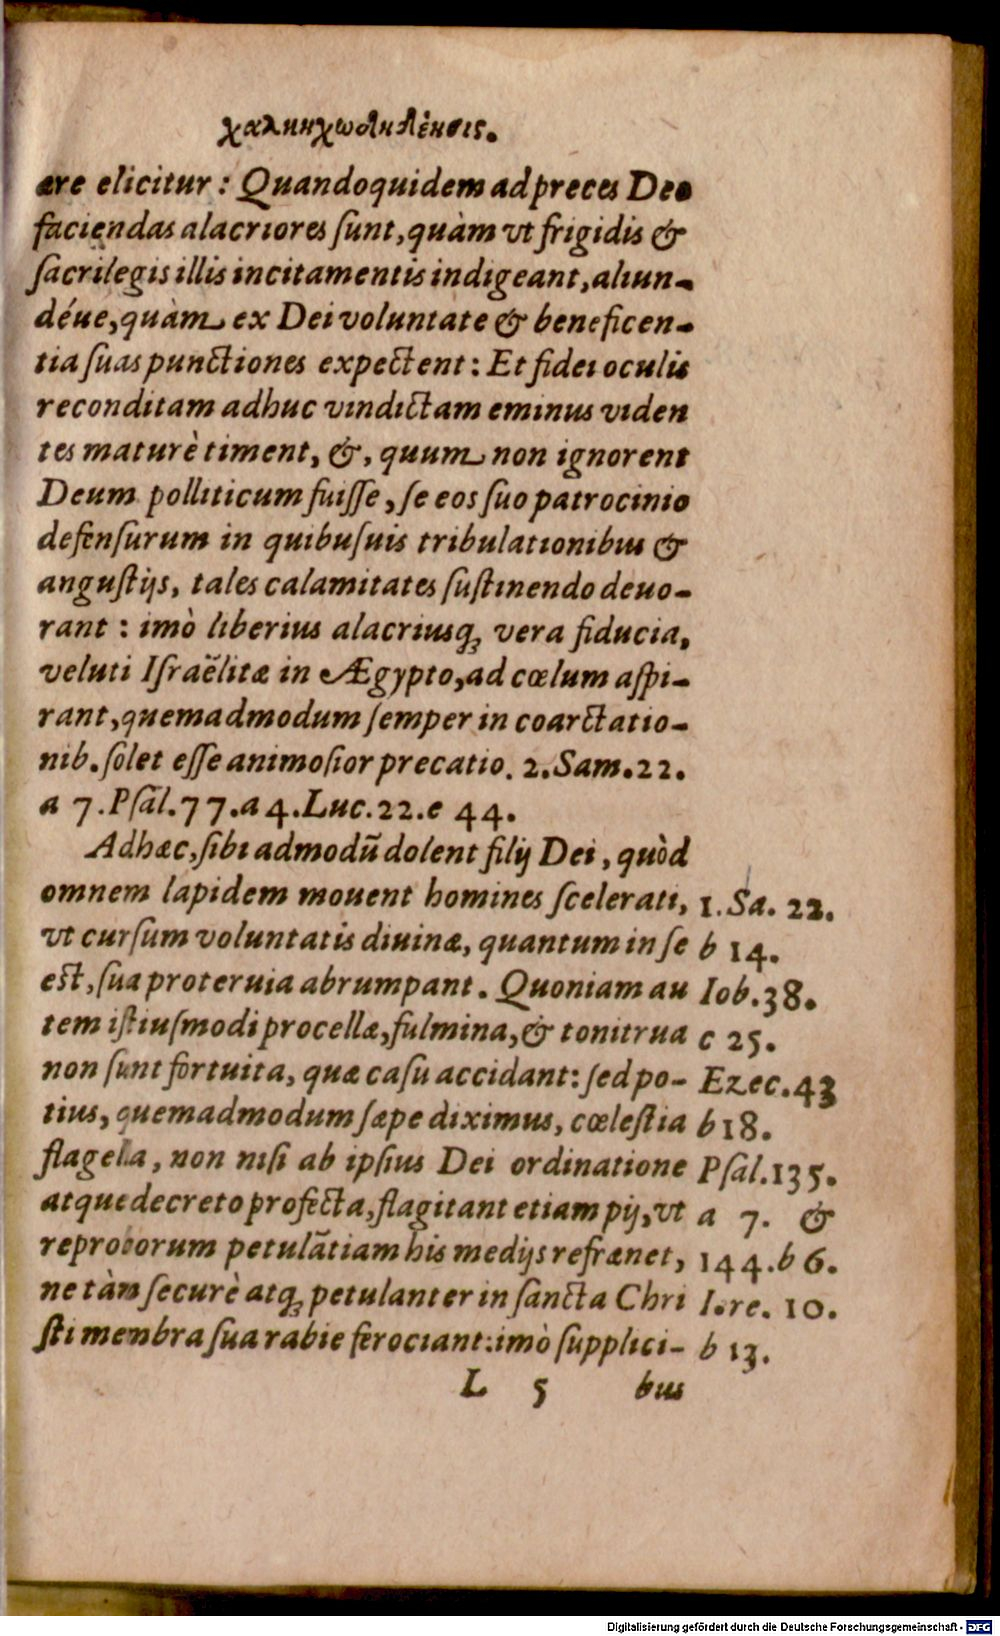 χαλκηχωδηλένσις.
ære elicitur: Quandoquidem ad preces Deo
faciendas alacriores ſunt, quàm vt frigidis &
ſacrilegis illis incitamentis indigeant, aliun-
déue, quàm ex Dei voluntate & beneficen-
tia ſuas punctiones expectent: Et fidei oculis
reconditam adhuc vindictam eminus viden
tes maturè timent, &, quum non ignorent
Deum polliticum fuiſſe, ſe eos ſuo patrocinio
defenſurum in quibuſuis tribulationibus &
anguſtijs, tales calamitates ſuſtinendo deuo-
rant: imò liberius alacriusq́; vera fiducia,
veluti Iſraëlitæ in Ægypto, ad cœlum aſpi-
rant, quemadmodum ſemper in coarctatio-
nib. ſolet eſſe animoſior precatio. 2. Sam. 22.
a 7. Pſal. 77. a 4. Luc. 22. e 44.
Adhæc, ſibi admodũ dolent filij Dei, quòd
omnem lapidem mouent homines ſcelerati,
vt curſum voluntatis diuinæ, quantum in ſe
eſt, ſua proteruia abrumpant. Quoniam au
tem iſtiuſmodi procellæ, fulmina, & tonitrua
non ſunt fortuita, quæ caſu accidant: ſed po-
tius, quemadmodum ſæpe diximus, cœleſtia
flagella, non niſi ab ipſius Dei ordinatione
atque decreto profecta, flagitant etiam pij, vt
reproborum petulātiam his medijs refrænet,
ne tàm ſecurè atq́; petulanter in ſancta Chri
ſti menbra ſua rabie ferociant: imò ſupplici-
1. Sa. 22.
b 14.
Iob. 38.
c 25.
Ezec. 43
b 18.
Pſal. 135.
a 7. &
144. b 6.
Iere. 10.
b 13.
L 5 bus
Digitalisierung gefördert durch die Deutsche Forschungsgemeinschaft - DFG